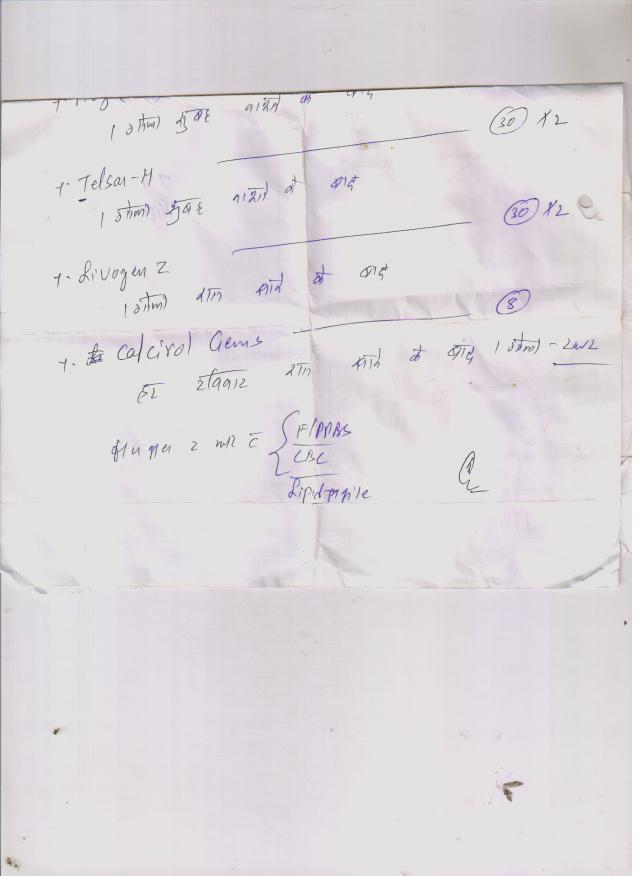 1 गोली सुबह नाश्ते के बाद
30 x 2
+. Telsar-H
1 गोली सुबह नाश्ते के बाद
30 x 2
+. Livogen Z
1 गोली रात खाने के बाद
+. Calcirol Gems
8
1 गोली - 2 माह
हर रविवार रात खाने के बाद
2 माह c̄ { F/PPBS
CBC
Lipid profile